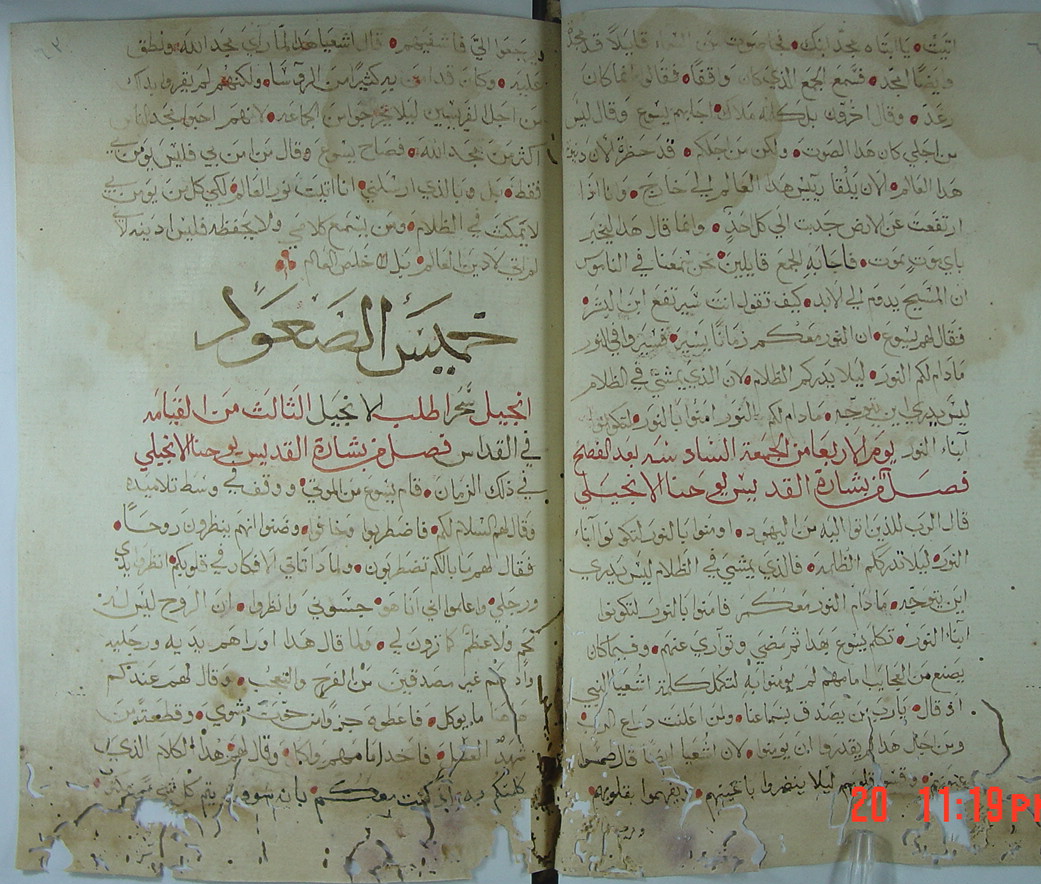 اتيت يا ابتاه مجد ابنك فجا صوت من السماء قايلًا قد مجدت
وايضًا امجد فسمع الجمع الذي كان واقفًا فقالو انما كان
رعد وقال اخرون بل كلمه ملاك اجابهم يسوع وقال ليس
من اجلي كان هدا الصوت ولكن من اجلكم قد حضرة الان دينونة
هدا العالم الان يلقا رييس هدا العالم الي خارج وانا ادا
ارتفعت عن الارض جدبت الي كل احدٍ وانما قال هدا ليخبر
باي موت يموت فاجابه الجمع قايلين نحن سمعنا في الناموس
ان المسيح يدوم الي لابد كيف تقول انت سيرتفع ابن البشر
فقال لهم يسوع ان النور معكم زمانًا يسير فسيروا في النور
مادام لكم النور ليلا يدرككم الظلام لان الذي يمشي في الظلام
ليس يدري اين يتوجه مادام لكم النور امنوا بالنور لتكونوا
ابناء النور يوم الاربعا من الجمعة السادسه بعد الفصح
فصل من بشارة القديس يوحنا الانجيلي
قال الرب للذين اتوا اليه من اليهود اومنوا بالنور لتكونوا ابناء
النور ليلا تدرككم الظلمه فالذي يمشي في الظلام ليس يدري
اين يتوجه مادام النور معكم فامنوا بالنور لتكونوا
ابناء النور تكلم يسوع بهدا ثم مضي وتواري عنهم وفيما كان
يصنع من العجايب امامهم لم يومنوا به لتكمل كلمة اشعيا النبي
اذ قال يارب من يصدق بسماعنا ولمن اعلنت دراع الرب
ومن اجل هدا لم يقدروا ان يومنوا لان اشعيا ايضا قال طمسوا
عيونهم وقسوا قلوبهم ليلا ينضروا باعينهم ويفهموا بقلوبهم
ويرجعوا الي فاشفيهم قال اشعيا هدا لما راي مجد الله ونطق
عليه وكان قد امن به كثيرًا من الروسا ولكنهم لم يقروا بداك
من اجل الفريسيين ليلا يخرجوا من الجماعه لانهم احبوا مجد الناس
اكثر من مجد الله فصاح يسوع وقال من امن بي فليس يومن بي
فقط بل وبالذي ارسلني انا اتيت نور العالم لكي كل من يومن بي
لا يمكث في الظلام ومن يسمع كلامي ولا يحفظه فليس ادينه لاني
لم اتي لادين العالم بل لاخلص العالم
خميس الصعود
انجيل سَحَر اطلب الانجيل الثالث من القيامه
في القداس فصل من بشارة القديس يوحنا الانجيلي
في ذلك الزمان قام يسوع من الموتي ووقف في وسط تلاميده
وقال لهم السلام لكم فاضطربوا وخافوا وضنوا انهم ينظرون روحًا
فقال لهم ما بالكم تضطربون ولمادا تاتي الافكار في قلوبكم انظروا يدي
ورجلي واعلموا اني انا هو جسوني وانظروا ان الروح ليس له
لحم ولا عظم كما ترون لي ولما قال هدا اوراهم يديه ورجليه
واد هم غير مصدقين من الفرح والتعجب وقال لهم عندكم
هاهنا ما يوكل فاعطوه جزوًا من حوت مشوي وقطعة من
شهد العسل فاخد امامهم واكل وقال لهم هذا الكلام الذي
كلمتكم به اد كنت معكم بانه سوف يتم كل شي
20 11:19 PM